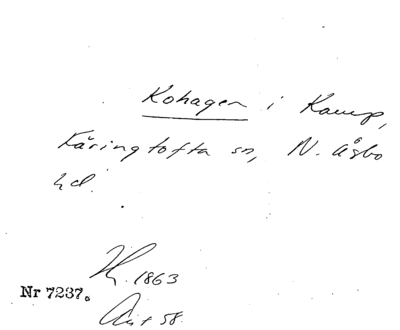 Kohagen i Kamp,
Käringtofta sn, N. Åsbo
hd.
H. 1863
Nr 7237.
Ant 58.